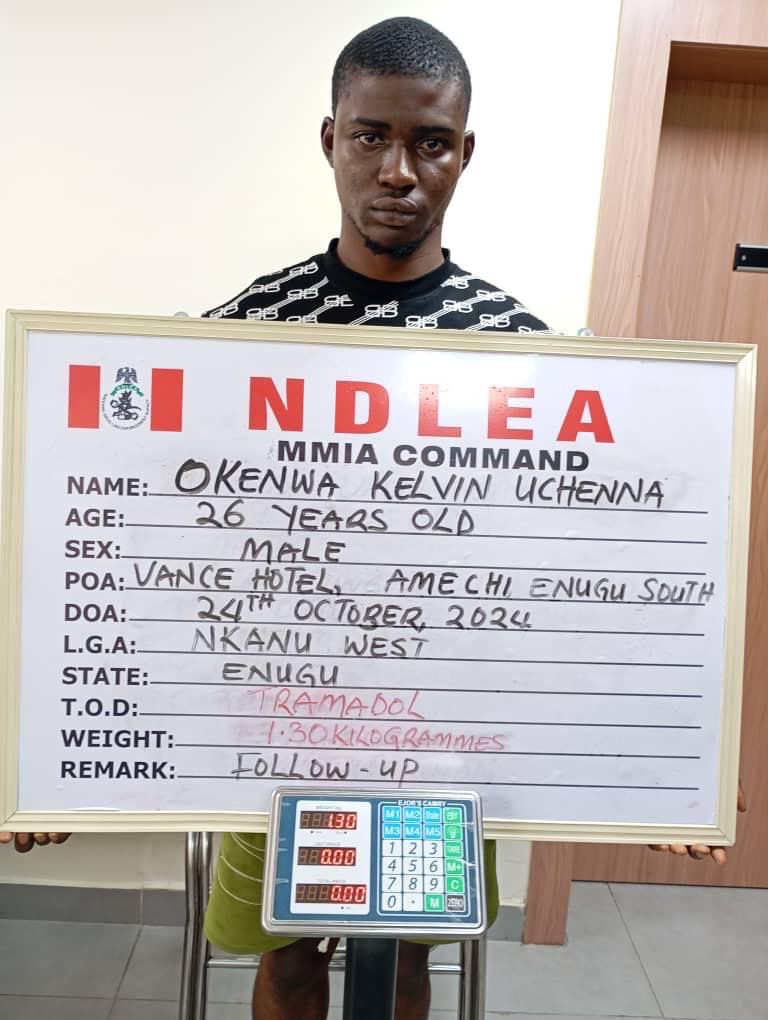 NDLEA
MMIA COMMAND
NAME: OKENWA KELVIN UCHENNA
AGE: 26 YEARS OLD
SEX: MALE
POA: VANCE HOTEL, AMECHI, ENUGU SOUTH
DOA: 24TH OCTOBER, 2024
L.G.A: NKANU WEST
STATE: ENUGU
T.O.D: TRAMADOL
WEIGHT: 1.30 KILOGRAMMES
REMARK: FOLLOW-UP
EJOR'S CAMRY
1.30
0.00
0.00
M1 M2
M3 M4 M5
1 2 3 TARE
4 5 6 M+
7 8 9 C
0 . M ZERO